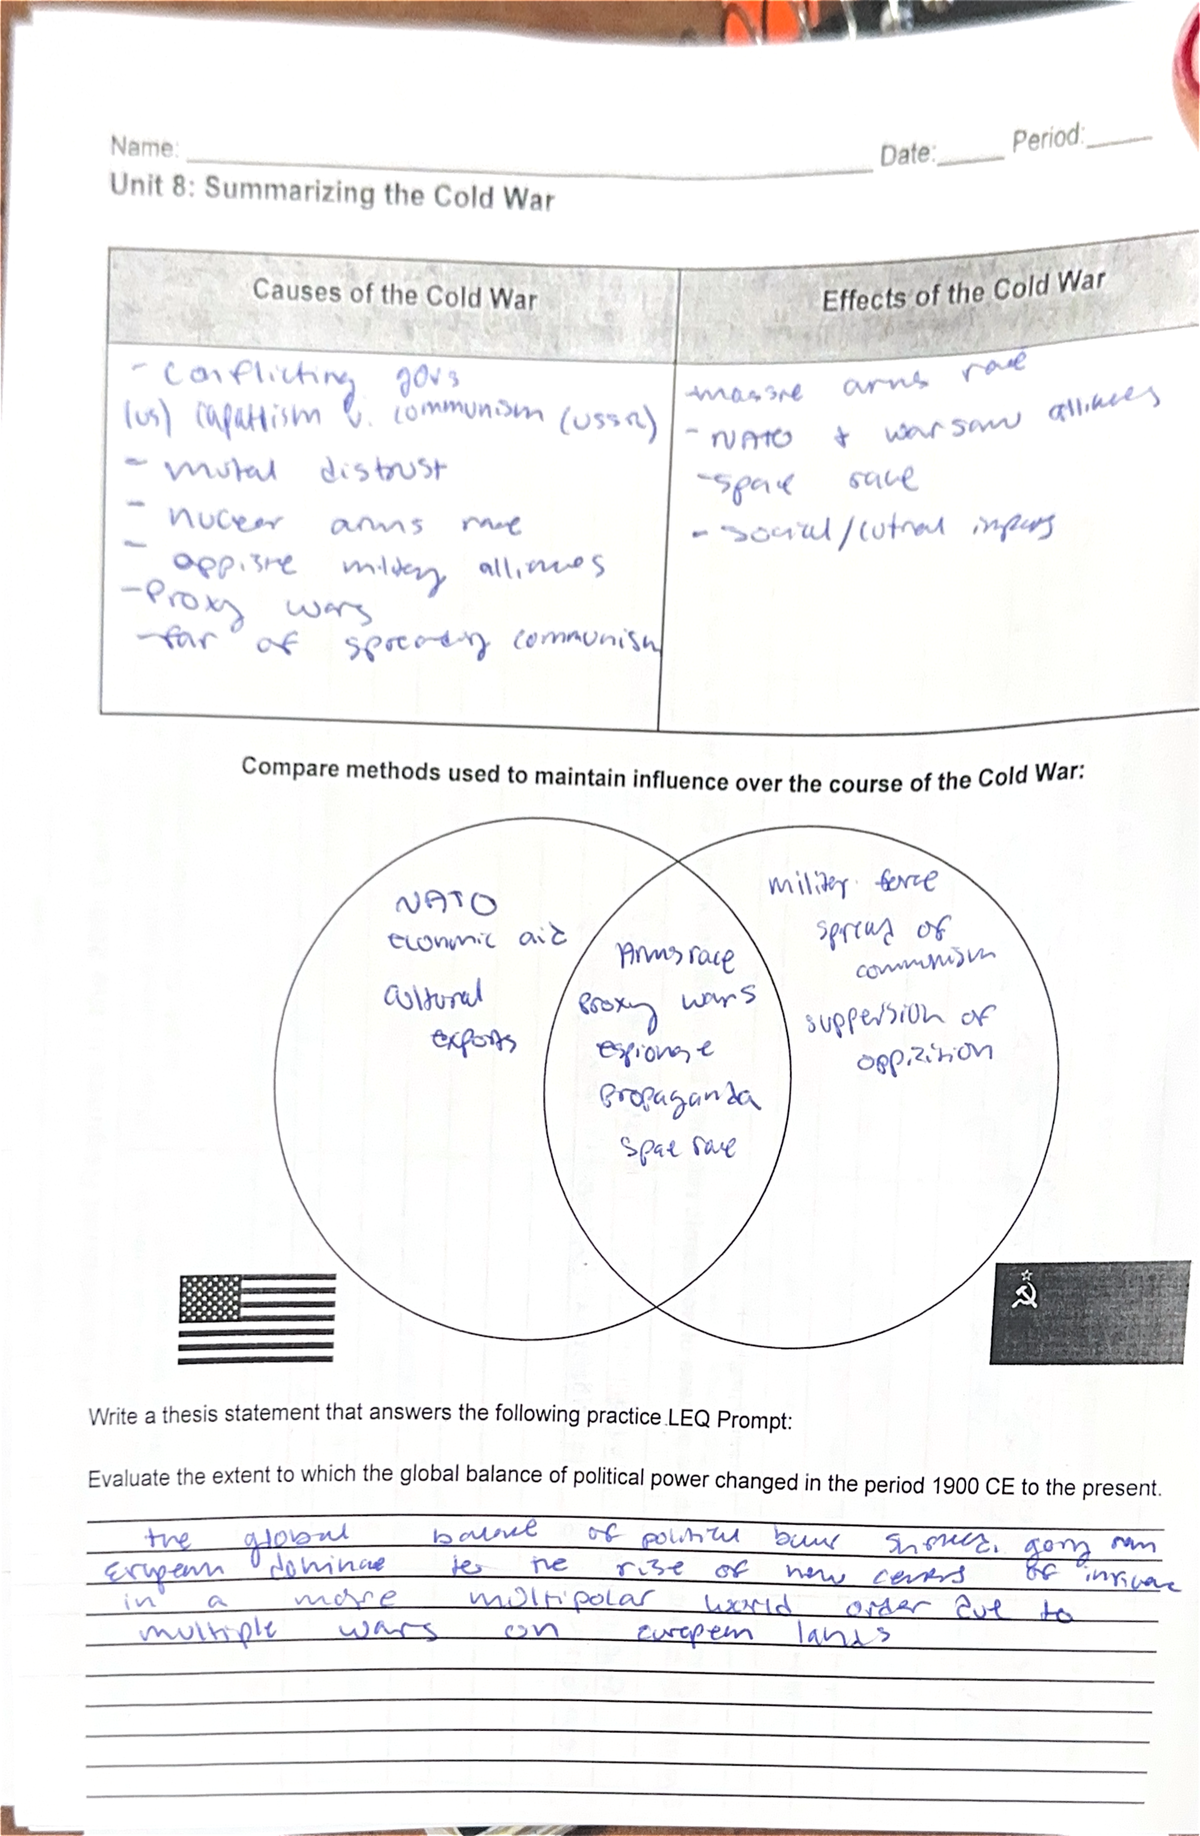 Name:
Date:
Period:
Unit 8: Summarizing the Cold War
Causes of the Cold War
Effects of the Cold War
- conflicting govs
(US) capattism v. communism (USSR)
- mutal distrust
- nucear arms race
- military alliances
- Proxy wars
- far of spreading communism
arms race
- NATO + warsaw alliances
- space race
- social/
Compare methods used to maintain influence over the course of the Cold War:
NATO
economic aid
cultural
exports
Arms race
proxy wars
espionage
Propaganda
space race
military force
spread of
communism
suppersion of
Write a thesis statement that answers the following practice LEQ Prompt:
Evaluate the extent to which the global balance of political power changed in the period 1900 CE to the present.
the global balance of political
to the rise of new centers of
in a more multipolar world order due to
multiple wars on european lands